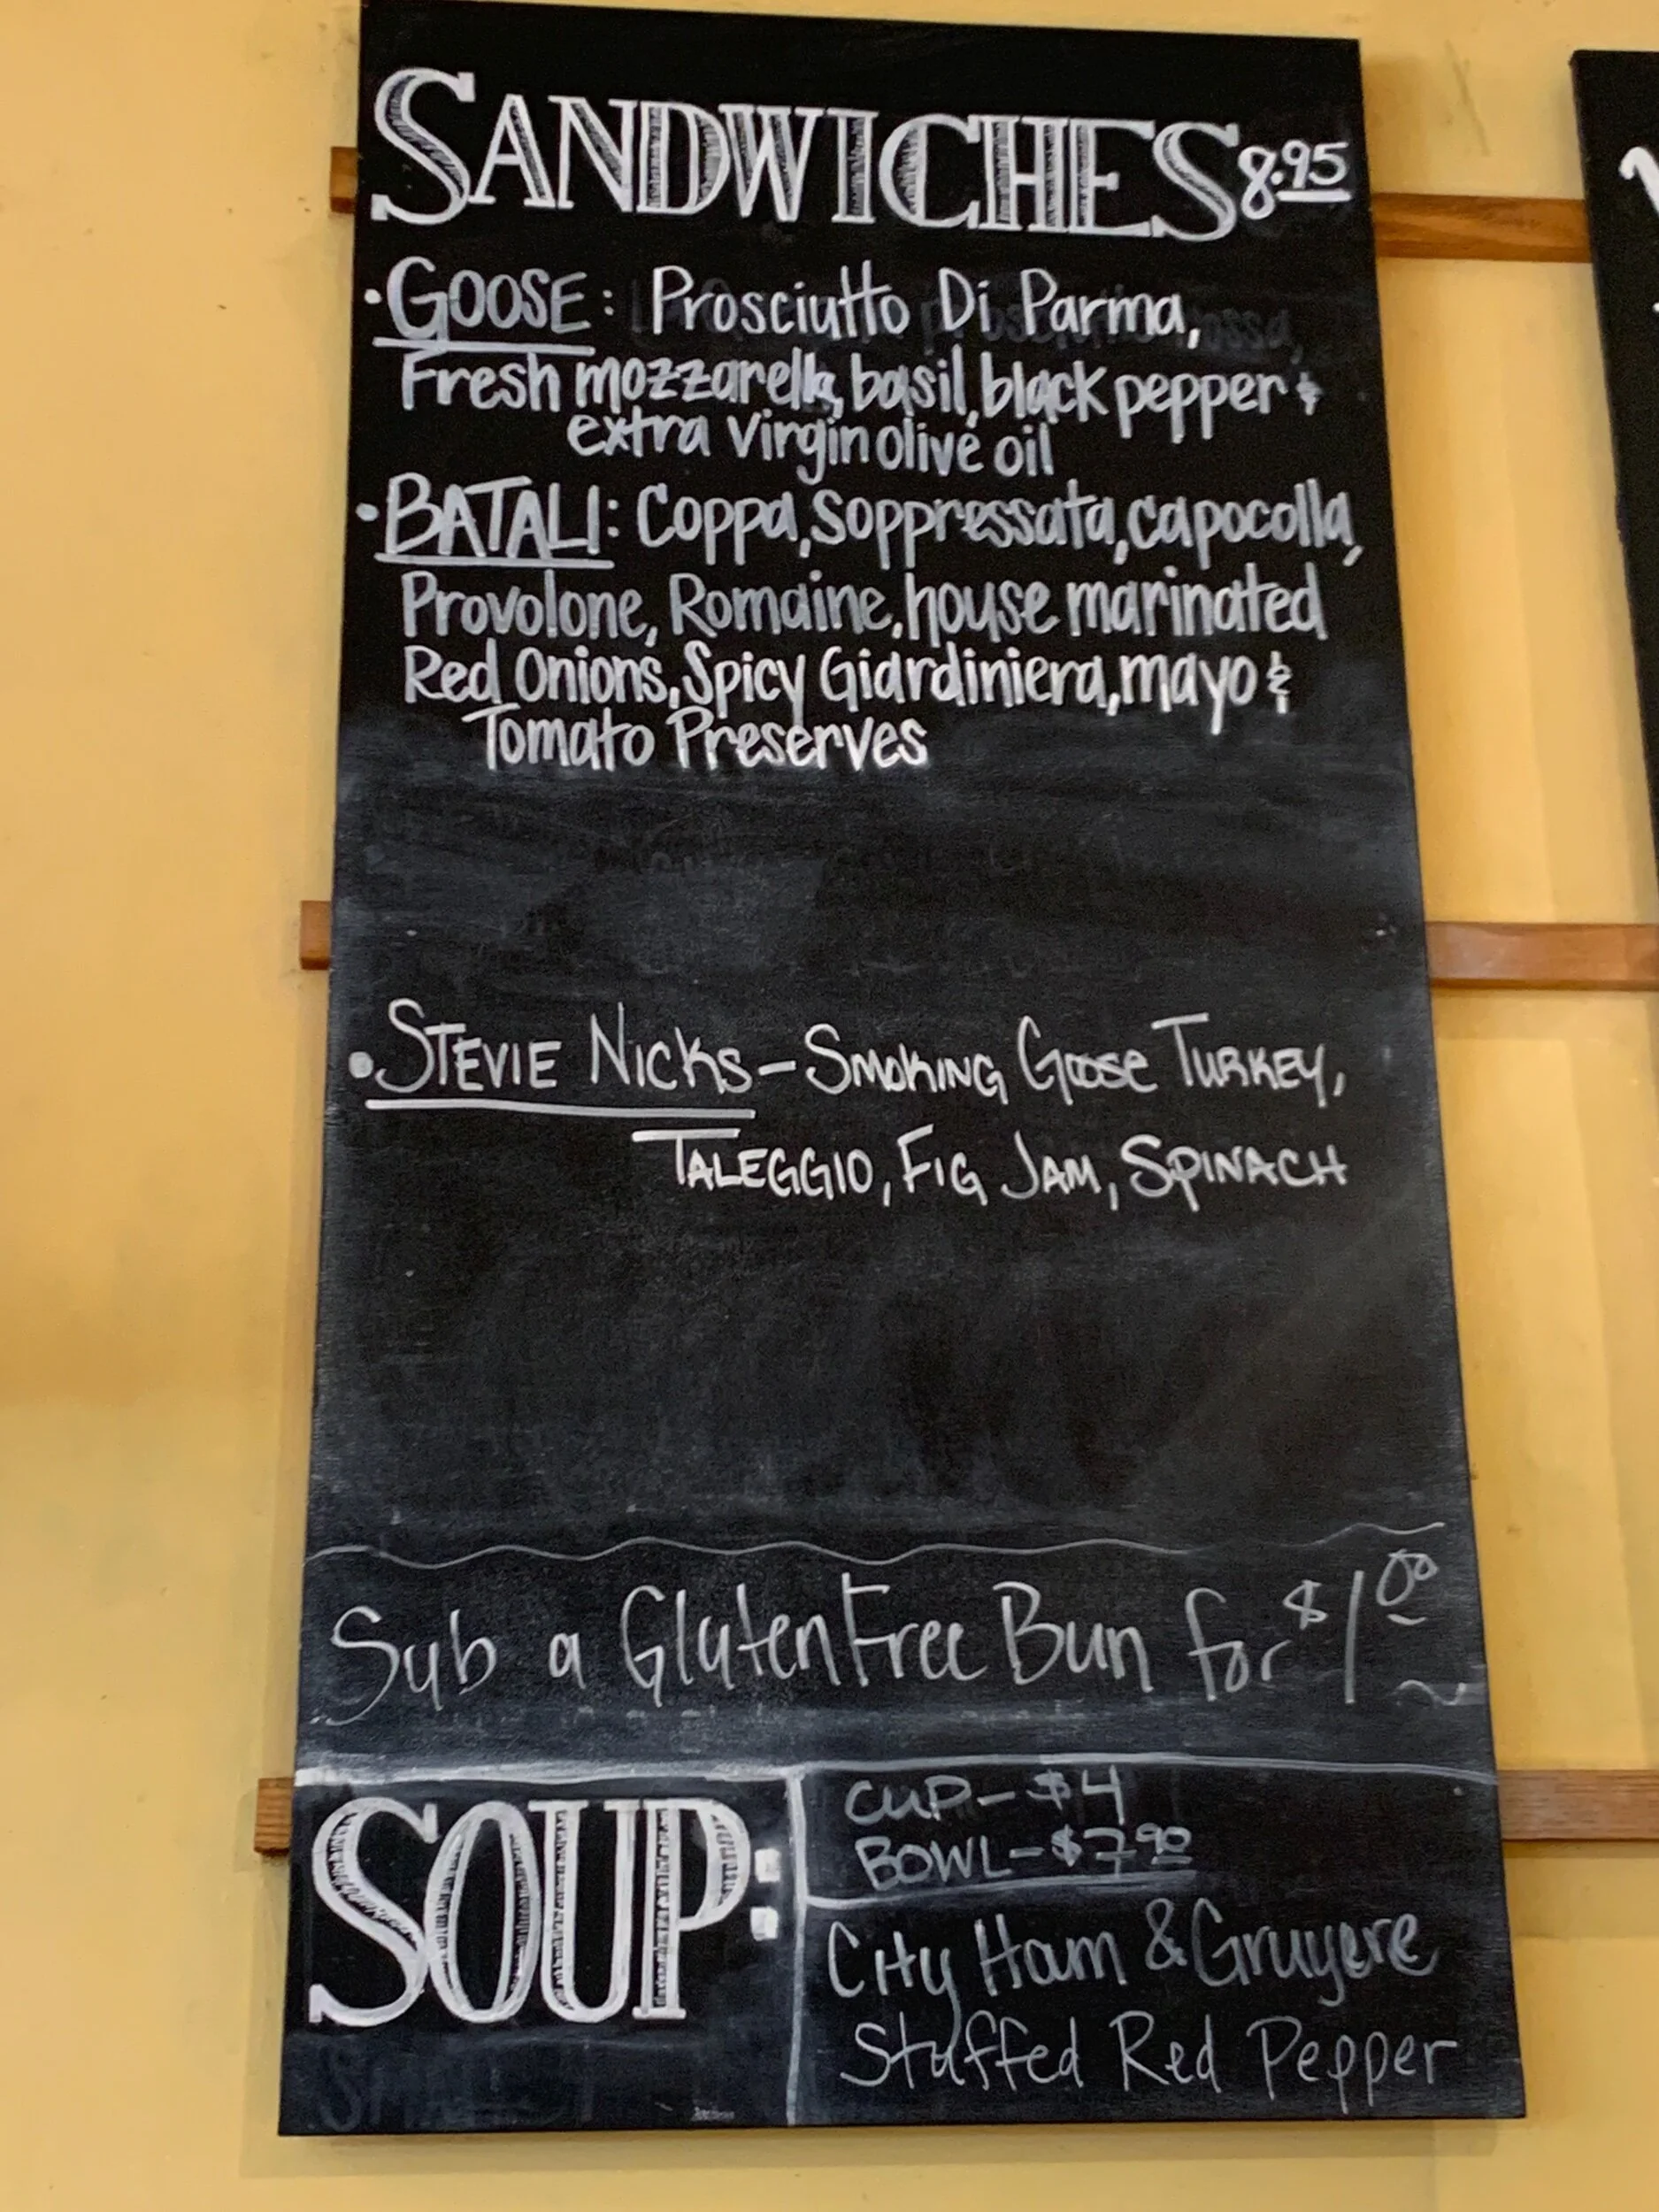 SANDWICHES 8.95
• GOOSE: Prosciutto Di Parma,
Fresh mozzarella, basil, black pepper &
extra Virgin olive oil
• BATALI: Coppa, Soppressata, capocolla,
Provolone, Romaine, house marinated
Red Onions, Spicy Giardiniera, mayo &
Tomato Preserves
• STEVIE NICKS – SMOKING GOOSE TURKEY,
TALEGGIO, FIG JAM, SPINACH
Sub a Gluten Free Bun for $1.00
SOUP:
CUP – $4
BOWL – $7.90
City Ham & Gruyere
Stuffed Red Pepper